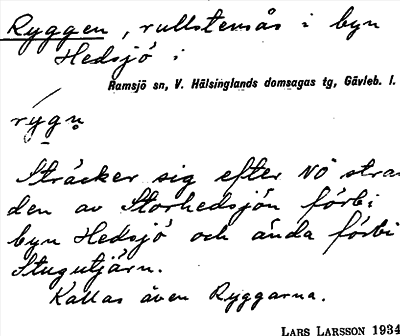 Ryggen, rullstensås i byn
Hedsjö i
Ramsjö sn, V. Hälsinglands domsagas tg, Gävleb. l.
rýgn̥
Sträcker sig efter NÖ stran
den av Storhedsjön förbi
byn Hedsjö och ända förbi
Stugutjärn.
Kallas även Ryggarna.
LARS LARSSON 1934